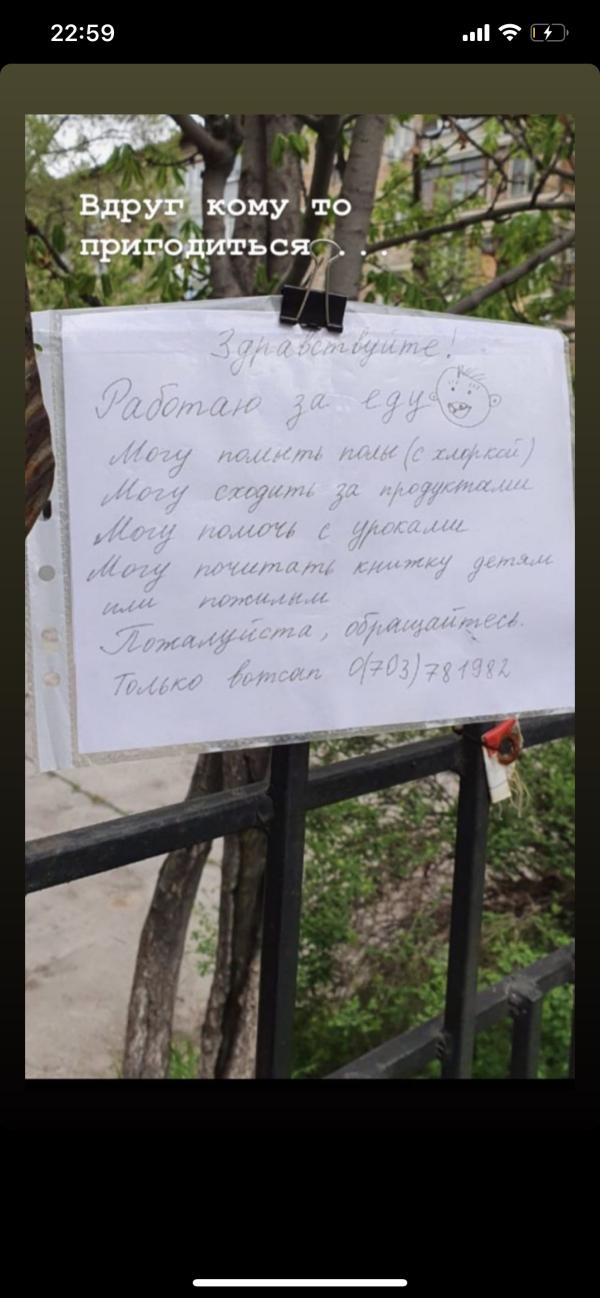 22:59
Вдруг кому то
пригодиться...
Здравствуйте!
Работаю за еду
Могу помыть полы (с хлоркой)
Могу сходить за продуктами
Могу помочь с уроками
Могу почитать книжку детям
или пожилым
Пожалуйста, обращайтесь.
Только вотсап 0(703)781982